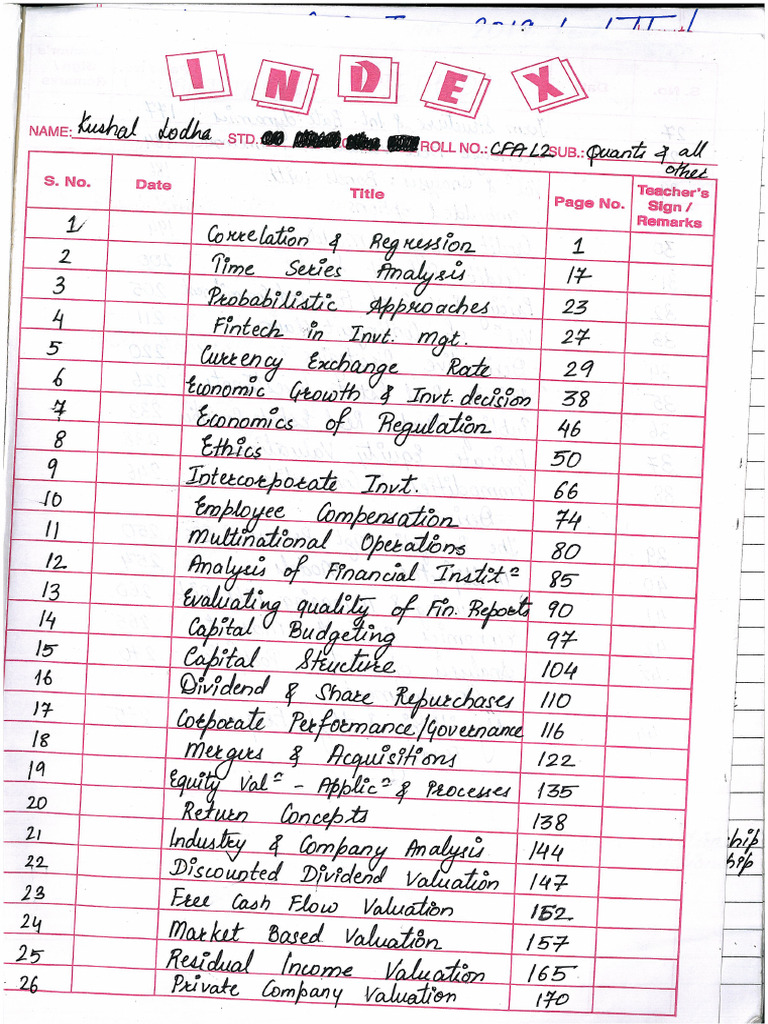 INDEX
NAME: Kushal Lodha STD. ROLL NO.: CFA L2 SUB.: Quants & all other
S. No. Date Title Page No. Teacher's Sign / Remarks
1 Correlation & Regression 1
2 Time Series Analysis 17
3 Probabilistic Approaches 23
4 Fintech in Invt. mgt. 27
5 Currency Exchange Rate 29
6 Economic Growth & Invt. decision 38
7 Economics of Regulation 46
8 Ethics 50
9 Intercorporate Invt. 66
10 Employee Compensation 74
11 Multinational Operations 80
12 Analysis of Financial Instit⁠ⁿ 85
13 Evaluating quality of Fin. Reports 90
14 Capital Budgeting 97
15 Capital Structure 104
16 Dividend & Share Repurchases 110
17 Corporate Performance/Governance 116
18 Mergers & Acquisitions 122
19 Equity Valⁿ - Applicⁿ & Processes 135
20 Return Concepts 138
21 Industry & Company Analysis 144
22 Discounted Dividend Valuation 147
23 Free Cash Flow Valuation 152
24 Market Based Valuation 157
25 Residual Income Valuation 165
26 Private Company Valuation 170